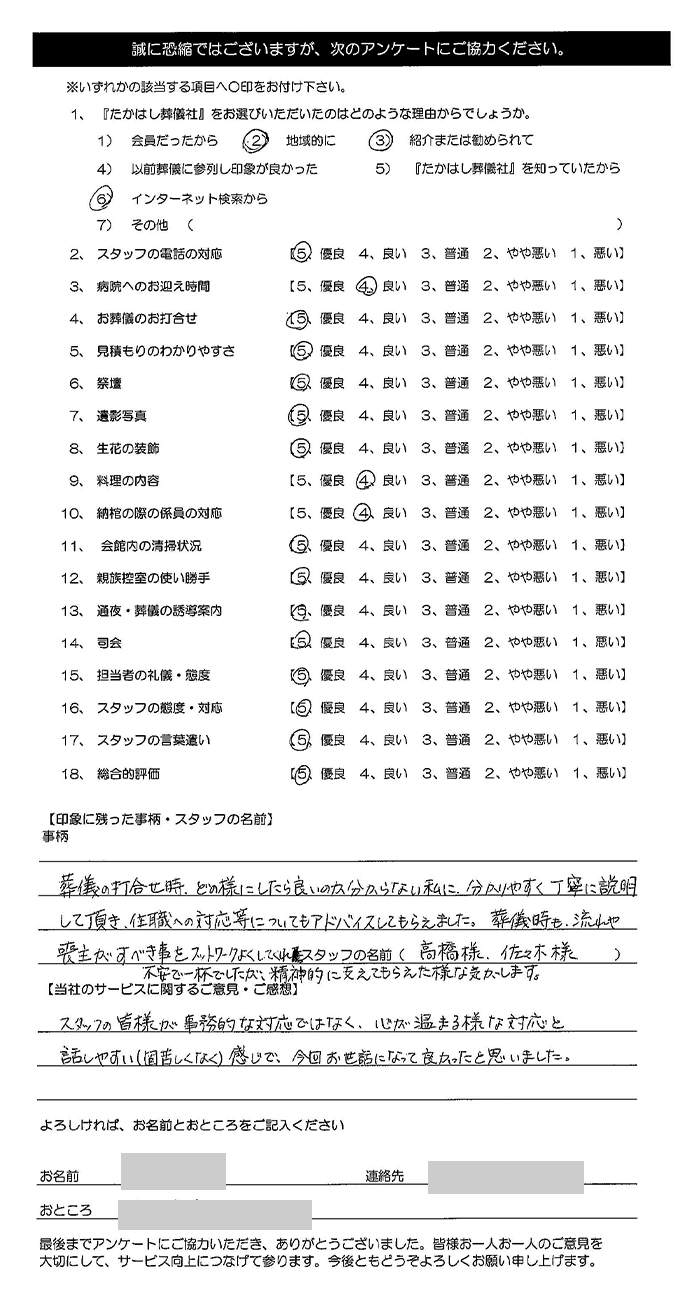 誠に恐縮ではございますが、次のアンケートにご協力ください。
※いずれかの該当する項目へ〇印をお付け下さい。
1、『たかはし葬儀社』をお選びいただいたのはどのような理由からでしょうか。
1） 会員だったから 2） 地域的に 3） 紹介または勧められて
4） 以前葬儀に参列し印象が良かった 5） 『たかはし葬儀社』を知っていたから
6） インターネット検索から
7） その他 （ ）
2、 スタッフの電話の対応 【5、優良 4、良い 3、普通 2、やや悪い 1、悪い】
3、 病院へのお迎え時間 【5、優良 4、良い 3、普通 2、やや悪い 1、悪い】
4、 お葬儀のお打合せ 【5、優良 4、良い 3、普通 2、やや悪い 1、悪い】
5、 見積もりのわかりやすさ 【5、優良 4、良い 3、普通 2、やや悪い 1、悪い】
6、 祭壇 【5、優良 4、良い 3、普通 2、やや悪い 1、悪い】
7、 遺影写真 【5、優良 4、良い 3、普通 2、やや悪い 1、悪い】
8、 生花の装飾 【5、優良 4、良い 3、普通 2、やや悪い 1、悪い】
9、 料理の内容 【5、優良 4、良い 3、普通 2、やや悪い 1、悪い】
10、 納棺の際の係員の対応 【5、優良 4、良い 3、普通 2、やや悪い 1、悪い】
11、 会館内の清掃状況 【5、優良 4、良い 3、普通 2、やや悪い 1、悪い】
12、 親族控室の使い勝手 【5、優良 4、良い 3、普通 2、やや悪い 1、悪い】
13、 通夜・葬儀の誘導案内 【5、優良 4、良い 3、普通 2、やや悪い 1、悪い】
14、 司会 【5、優良 4、良い 3、普通 2、やや悪い 1、悪い】
15、 担当者の礼儀・態度 【5、優良 4、良い 3、普通 2、やや悪い 1、悪い】
16、 スタッフの態度・対応 【5、優良 4、良い 3、普通 2、やや悪い 1、悪い】
17、 スタッフの言葉遣い 【5、優良 4、良い 3、普通 2、やや悪い 1、悪い】
18、 総合的評価 【5、優良 4、良い 3、普通 2、やや悪い 1、悪い】
【印象に残った事柄・スタッフの名前】
事柄
葬儀の打合せ時、どの様にしたら良いのか分からない私に、分かりやすく丁寧に説明
して頂き、住職への対応等についてもアドバイスしてもらえました。葬儀時も、流れや
喪主がすべき事をフットワークよくしてくれ スタッフの名前（ 高橋様、佐々木様 ）
不安で一杯でしたが、精神的に支えてもらえた様な気がします。
【当社のサービスに関するご意見・ご感想】
スタッフの皆様が事務的な対応ではなく、心が温まる様な対応と
話しやすい（固苦しくなく）感じで、今回お世話になって良かったと思いました。
よろしければ、お名前とおところをご記入ください
お名前 連絡先
おところ
最後までアンケートにご協力いただき、ありがとうございました。皆様お一人お一人のご意見を
大切にして、サービス向上につなげて参ります。今後ともどうぞよろしくお願い申し上げます。